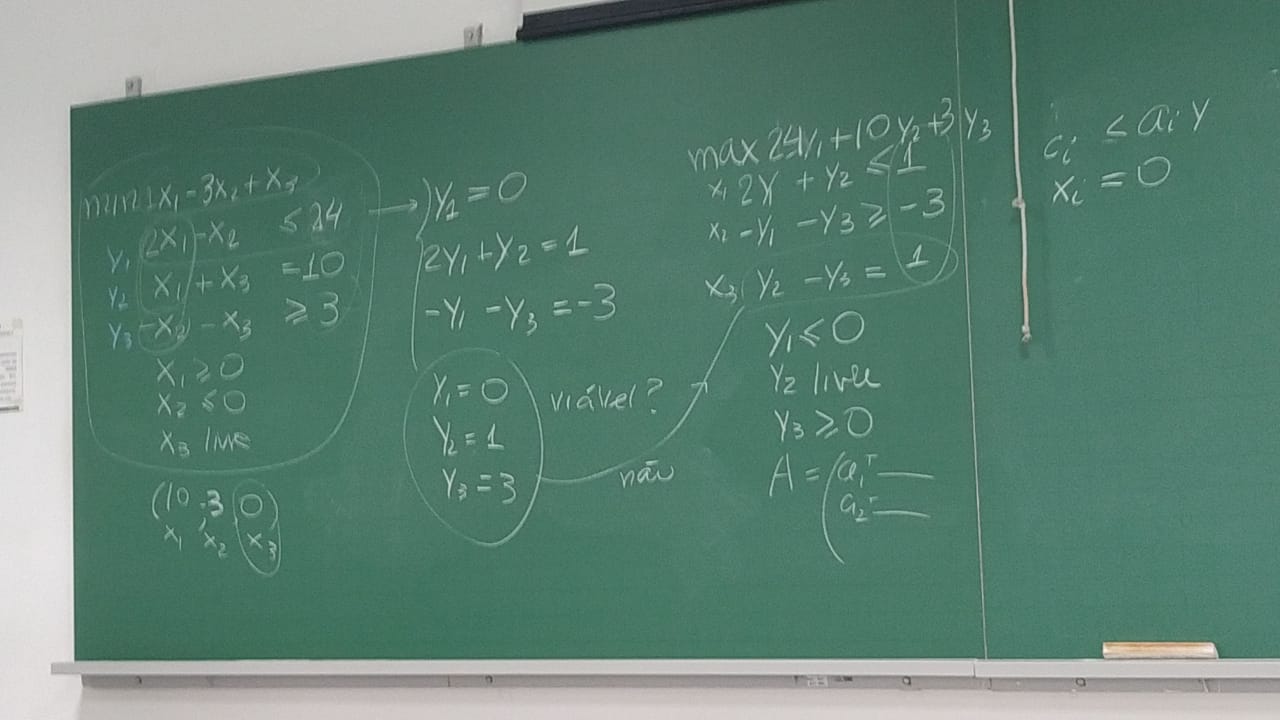 min 1x₁ - 3x₂ + x₃
y₁ 2x₁ - x₂ ≤ 24
y₂ x₁ + x₃ = 10
y₃ -x₂ - x₃ ≥ 3
x₁ ≥ 0
x₂ ≤ 0
x₃ livre
(10 -3 0)
x₁ x₂ x₃
→ y₁ = 0
2y₁ + y₂ = 1
-y₁ - y₃ = -3
y₁ = 0
y₂ = 1
y₃ = 3
viável?
não
max 24y₁ + 10y₂ + 3y₃
x₁ 2y + y₂ ≤ 1
x₂ -y₁ - y₃ ≥ -3
x₃ y₂ - y₃ = 1
y₁ ≤ 0
y₂ livre
y₃ ≥ 0
A = (a₁ᵀ —
a₂ᵀ —
cᵢ ≤ aᵢ y
xᵢ = 0